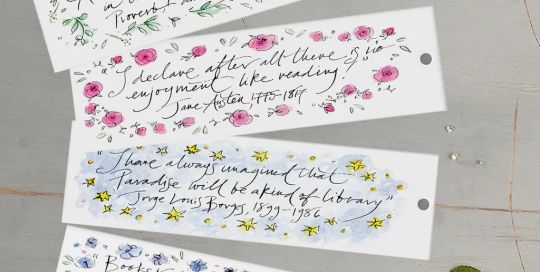 in
Proverb
"I declare after all there is no
enjoyment like reading."
Jane Austen 1775-1817
"I have always imagined that
Paradise will be a kind of library"
Jorge Louis Borges, 1899-1986
"Books